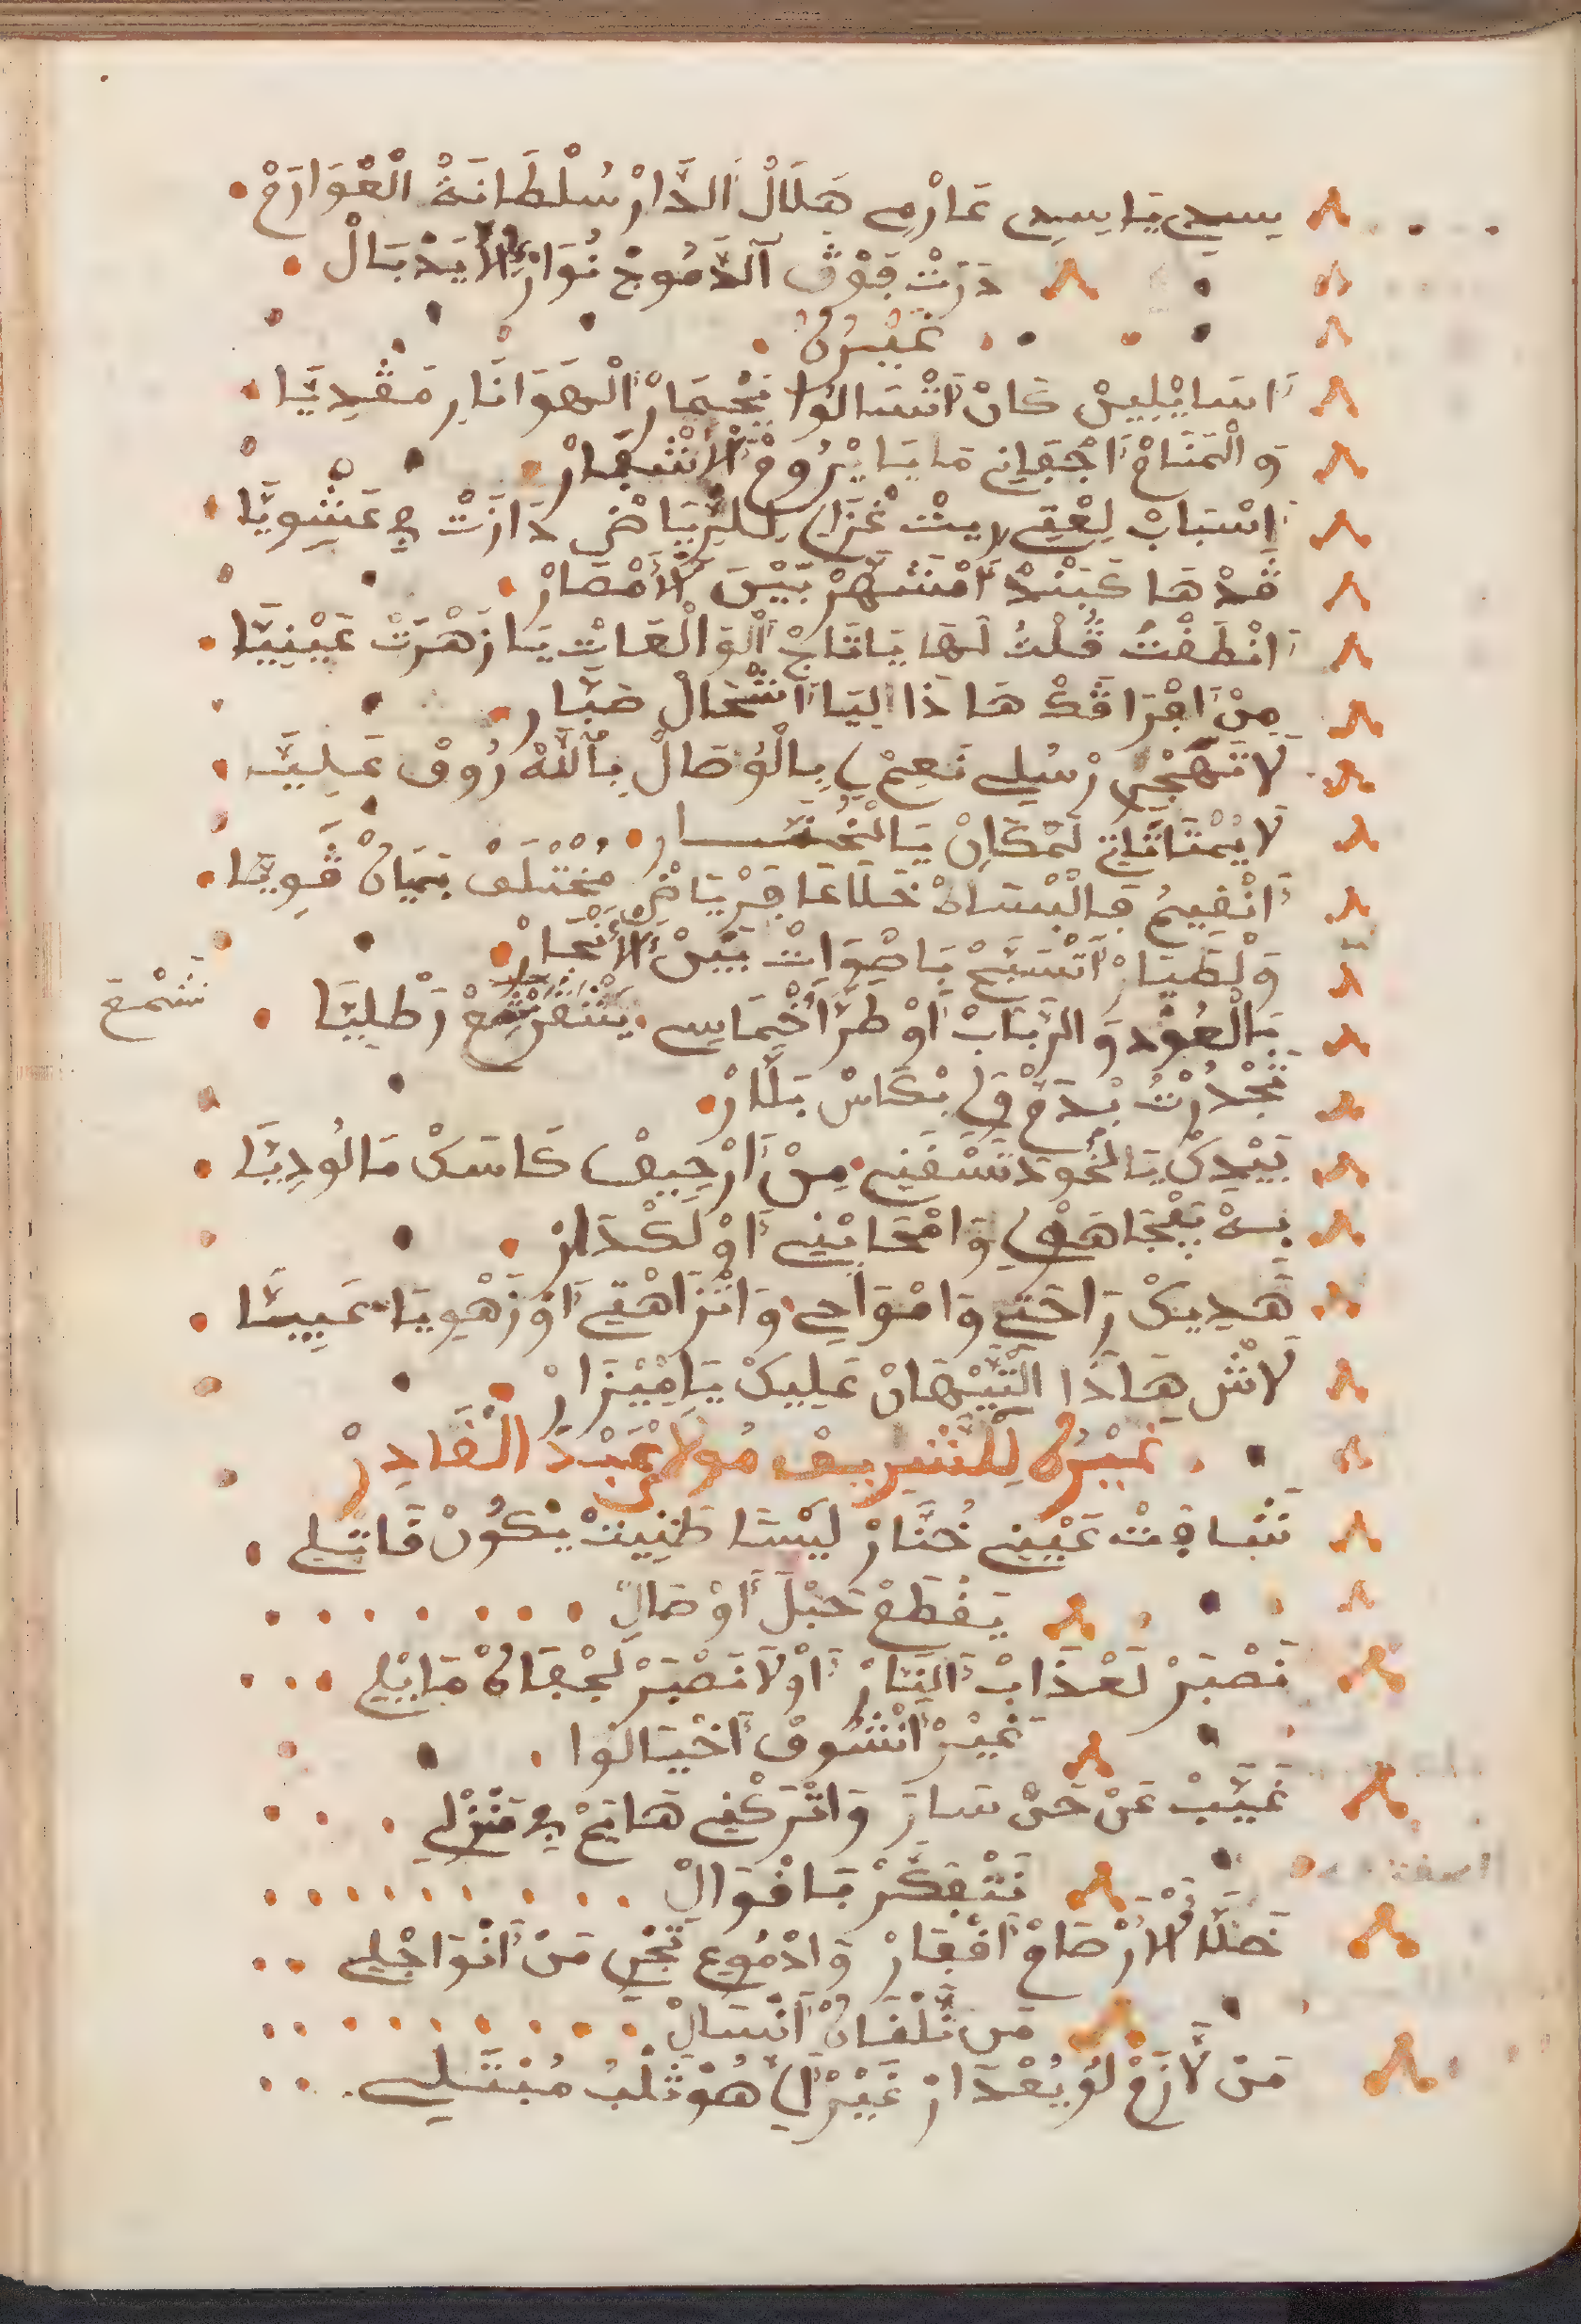 سِيدِي يَا سِيدِي غَارْمِي هَلَالْ الدَّارْ سُلْطَانَةْ الْغْوَارَمْ
دَرَتْ فَوْقْ الدَّمُوجْ نُوَارْ لَا يَذْبَالْ
غَيْرُهُ
اسَايْلِينْ كَانْ اتْسَالُوا بَجْمَارْ الْهَوَا نَارِ مَقْدِيَّا
وَالْمَنَامْ اجْفَانِي مَا يَا يْرُومْ الاشْفَارْ
اسْبَابْ لِعْتِي رِيتْ غْزَالِ لِلرْيَاضْ دَازَتْ فِي عَشْوِيَّا
قَدْهَا كَبَنْدْ امْشَهَّرْ بَيْنْ الأَمْصَارْ
انْطَقْتْ قُلْتُ لَهَا يَا تَاجْ الْوَالْعَاتْ يَا زَهْرَتْ عَيْنِيَّا
مِنْ افْرَاقَكْ هَاذَا لِيَا اشْحَالْ صَبَّارْ
لَا تَهَجْرِ رَسْلِي نَعِمْ لِي بِالْوُصَالْ بِاللَّهْ رُوفْ عَلِيَّ
لَا يْمْتَاتَانِي لَمْكَانْ يَا الْخُنَّار
انْقِيمُ فَالْبْسَاطْ خَلَاعَا فَرْيَاضْ مُخْتَلَفْ بَبْيَانْ قْوِيَّا
وَلْطِيَارْ اتْسَبَّحْ بَاصْوَاتْ بَيْنْ الأَنْجَارْ
بَالْعُودْ وَالرْبَابْ اوْ طَرْ اخْمَاسِي رَطْلِيَّا
شَمْعْ
بِيدِكْ يَا الْخُودْ تَسْقَنِي مِنْ ارْحِيقْ كَاسَكْ مَا لُودِيَّا
بِهْ يَفْجَاهَوْلِي وَامْحَايْنِي اوْ لَكْدَارْ
هَدِيكْ رَاحَتِي وَامْوَاحِي وَانْزَاهْتِي اوْ زَهْوِيَا عَيِيشَا
لَاشْ هَاذَا التِّيهَانْ عَلِيكْ يَا مِيزَارْ
غَيْرُهُ لِلشْرِيفْ مُولَايْ عَبْدْ الْقَادِرْ
شَافَتْ عَيْنِي خُنَّارْ لِيسَا ظَنِيتْ يْكُونْ قَاتْلِي
يَقْطَعْ حَبْلْ اوْصَالْ
نَصْبَرْ لَعْذَابْ النَّارْ اوْلَا نَصْبَرْ لَجْفَاهْ مَايْلِي
غَيْرْ انْشُوفْ اخْيَالُوا
غَيَّبْ عَنِّي حَتَّى سَارَ وَاتْرَكْنِي هَايَمْ فِي مَنْزْلِي
نَتْفَكَّرْ بَاقْوَالْ
خَلَّا الأَرْصَامْ اقْفَارْ وَادْمُوعِ تَجْرِي مَنْ انْوَاجْلِي
مَنْ نَلْقَاهْ انْسَالْ
مَنْ لَّا زَمْ لُو يُعْذَارْ غَيْرْ الِّي هُو قَلْبُ مُبْتَلِي